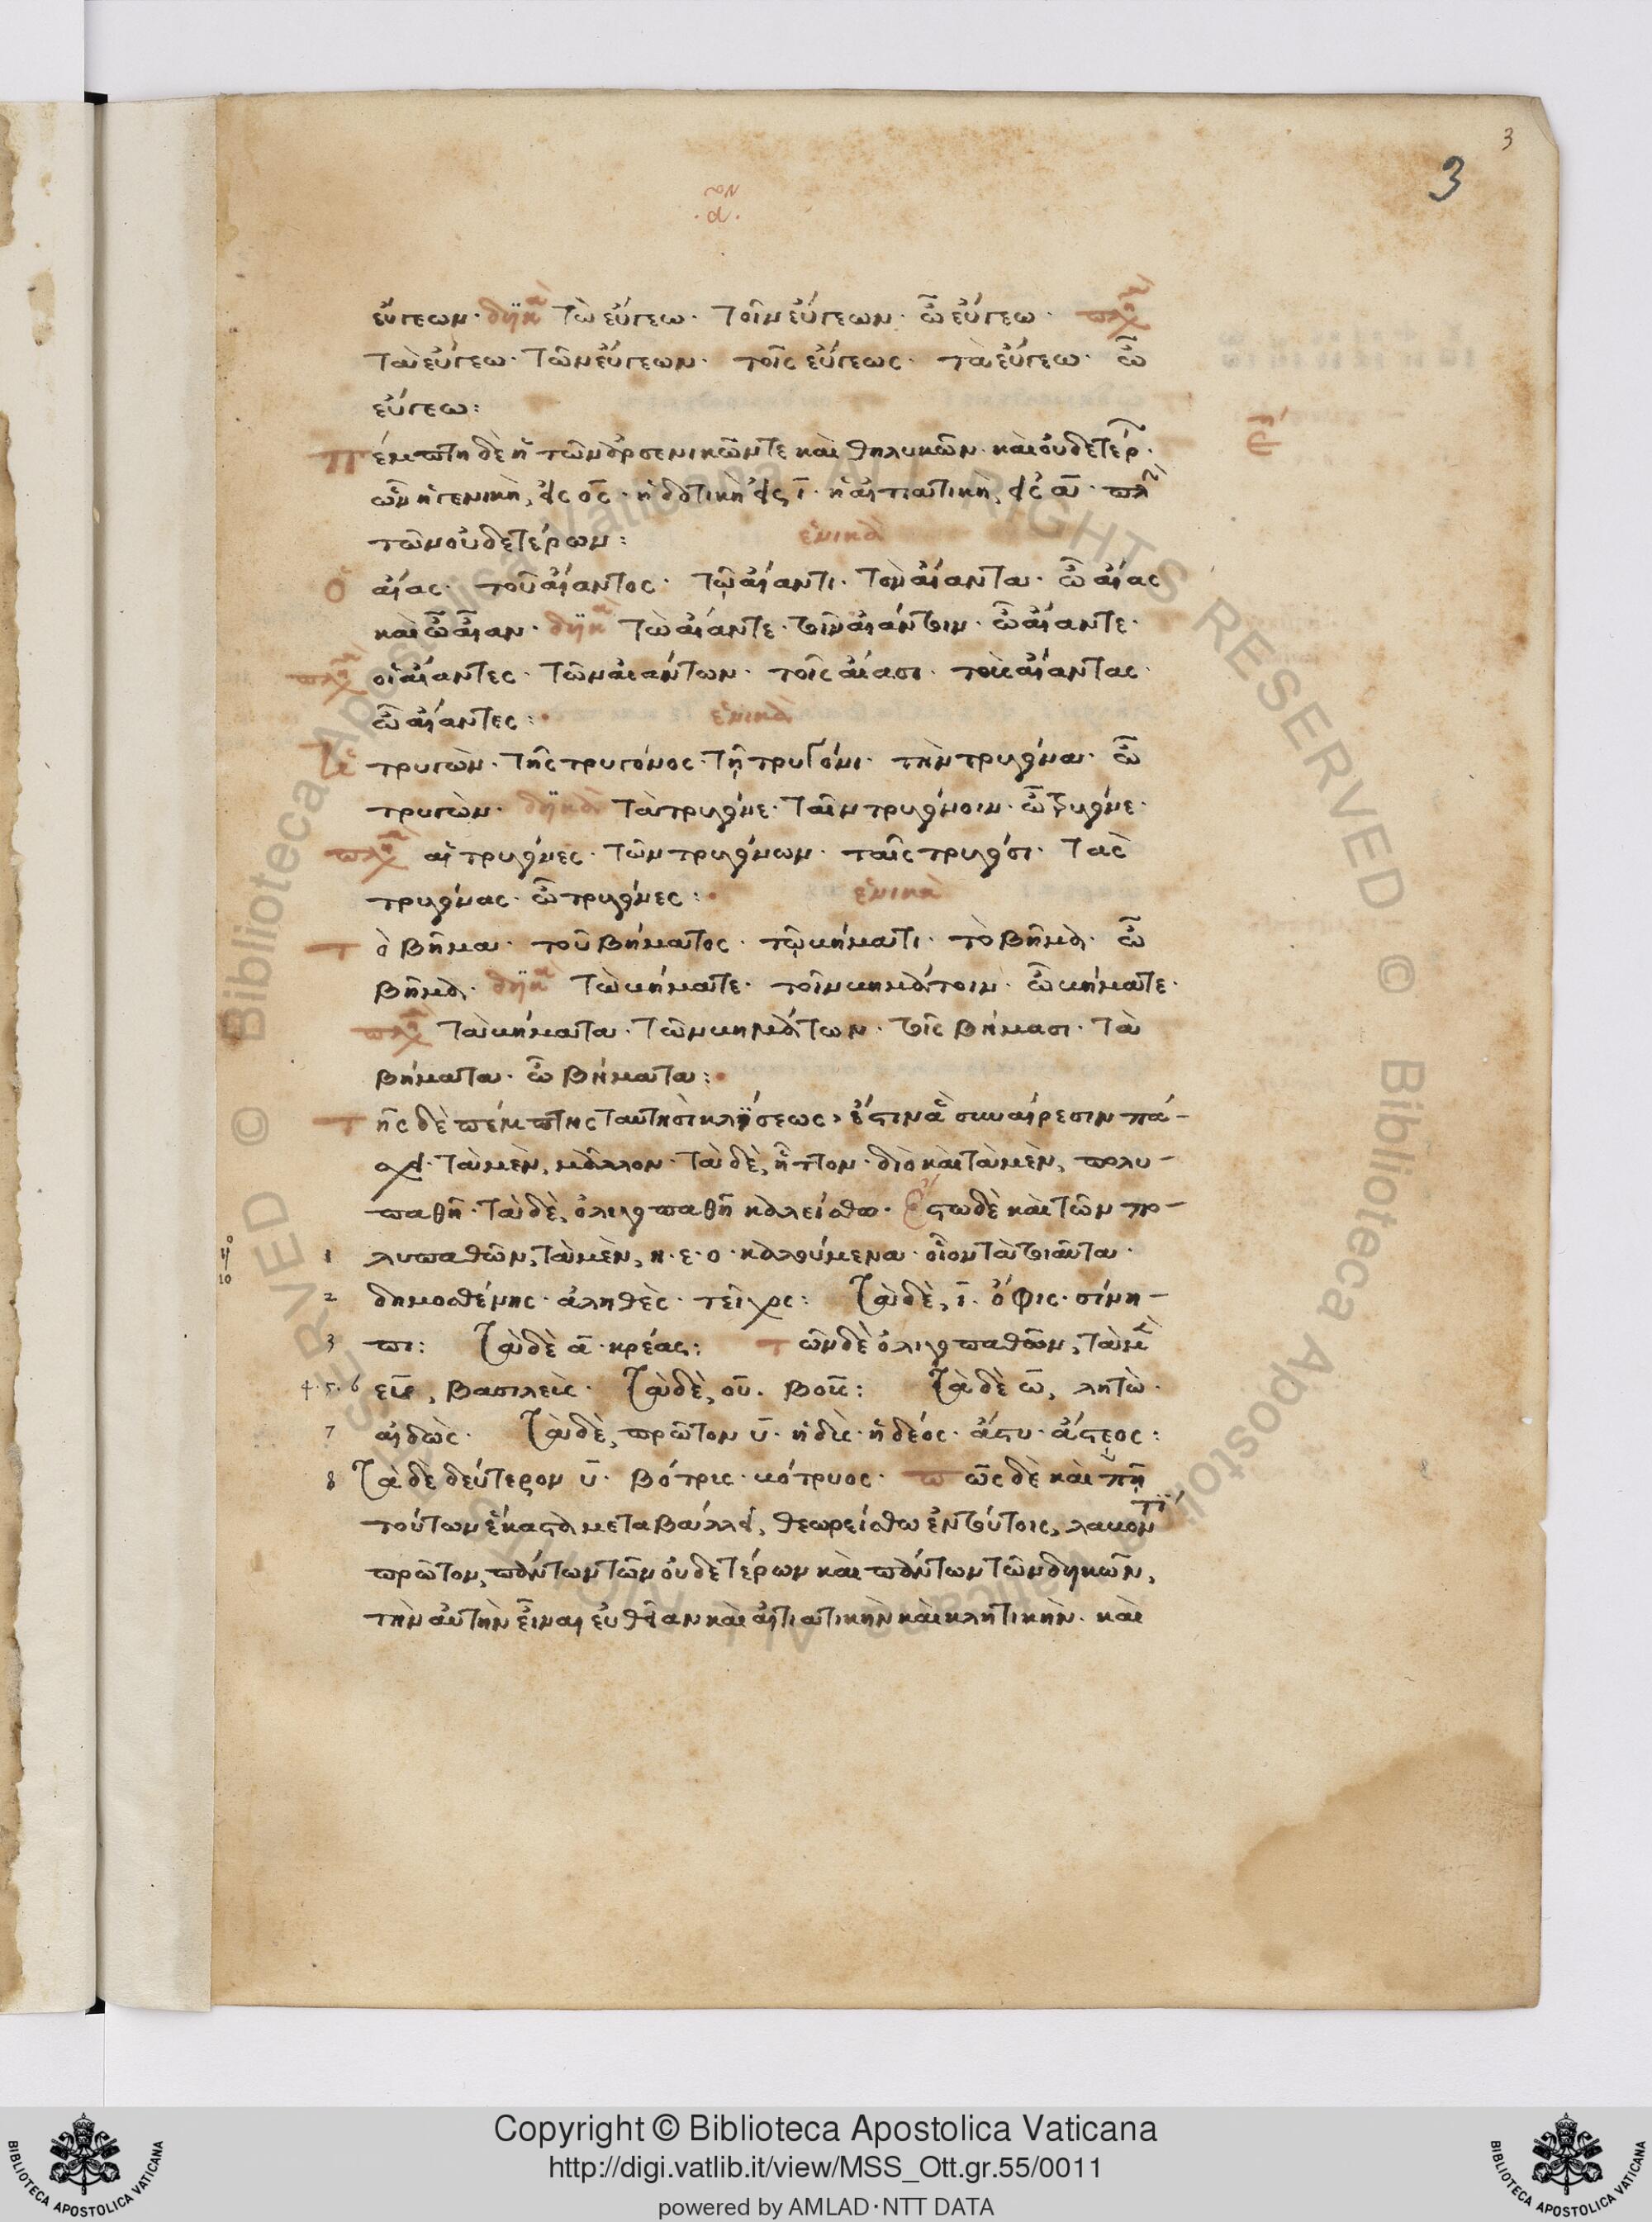 3
3
εὔγεων· δυϊκὰ τὼ εὔγεω· τοῖν εὔγεων· ὦ εὔγεω· πληθ
τὰ εὔγεω· τῶν εὔγεων· τοῖς εὔγεως· τὰ εὔγεω· ὦ
εὔγεω:
Πέμπτη δὲ ἡ τῶν ἀρσενικῶν τε καὶ θηλυκῶν· καὶ οὐδετέρ·
ὧν ἡ γενικὴ, εἰς ος· ἡ δοτικὴ εἰς ι· ἡ αἰτιατικὴ, εἰς α· πλὴν
τῶν οὐδετέρων: ἑνικὰ
Ὁ αἴας· τοῦ αἴαντος· τῷ αἴαντι· τὸν αἴαντα· ὦ αἴας
καὶ ὦ αἶαν· δυϊκὰ τὼ αἴαντε· τοῖν αἰάντοιν· ὦ αἴαντε·
οἱ αἴαντες· τῶν αἰάντων· τοῖς αἴασι· τοὺς αἴαντας·
ὦ αἴαντες: ἑνικὰ
τρυγὼν· τῆς τρυγόνος· τῇ τρυγόνι· τὴν τρυγόνα· ὦ
τρυγὼν· δυϊκὰ τὰ τρυγόνε· ταῖν τρυγόνοιν· ὦ τρυγόνε·
αἱ τρυγόνες· τῶν τρυγόνων· ταῖς τρυγόσι· τὰς
τρυγόνας· ὦ τρυγόνες: ἑνικὰ
Τὸ βῆμα· τοῦ βήματος· τῷ βήματι· τὸ βῆμα· ὦ
βῆμα· δυϊκὰ τὼ βήματε· τοῖν βημάτοιν· ὦ βήματε·
τὰ βήματα· τῶν βημάτων· τοῖς βήμασι· τὰ
βήματα· ὦ βήματα:
Τῆς δὲ πέμπτης ταύτης κλίσεως, ἔστιν ἃ συναίρεσιν πά-
σχει· τὰ μὲν, μᾶλλον· τὰ δὲ, ἧττον· διὸ καὶ τὰ μὲν, πολυ-
παθῆ· τὰ δὲ, ὀλιγοπαθῆ καλείσθω· Ἔστω δὲ καὶ τῶν πο-
1 λυπαθῶν, τὰ μὲν, η· ε· ο· καλούμενα· οἷον τὰ τοιαῦτα·
10
2 δημοσθένης· ἀληθὲς· τεῖχος: τὰ δὲ, ι· ὄφις· σίνη-
3 πι: τὰ δὲ α· κρέας: τῶν δὲ ὀλιγοπαθῶν, τὰ μὲν
4·5·6 ευ, βασιλεὺς· τὰ δὲ, ου· βοῦς: τὰ δὲ ω, λητὼ·
7 αἰδὼς· τὰ δὲ, πρῶτον υ· ἡδὺς· ἡδέος· ἄστυ· ἄστεος:
8 τὰ δὲ δεύτερον υ· βότρυς· βότρυος· πῶς δὲ καὶ πῆ
τούτων ἕκαστα μεταβάλλει, θεωρείσθω ἐν τούτοις, λαβόντι
πρῶτον, πάντων τῶν οὐδετέρων καὶ πάντων τῶν δυϊκῶν,
τὴν αὐτὴν εἶναι εὐθεῖαν καὶ αἰτιατικὴν καὶ κλητικὴν· καὶ
Copyright © Biblioteca Apostolica Vaticana
http://digi.vatlib.it/view/MSS_Ott.gr.55/0011
powered by AMLAD·NTT DATA